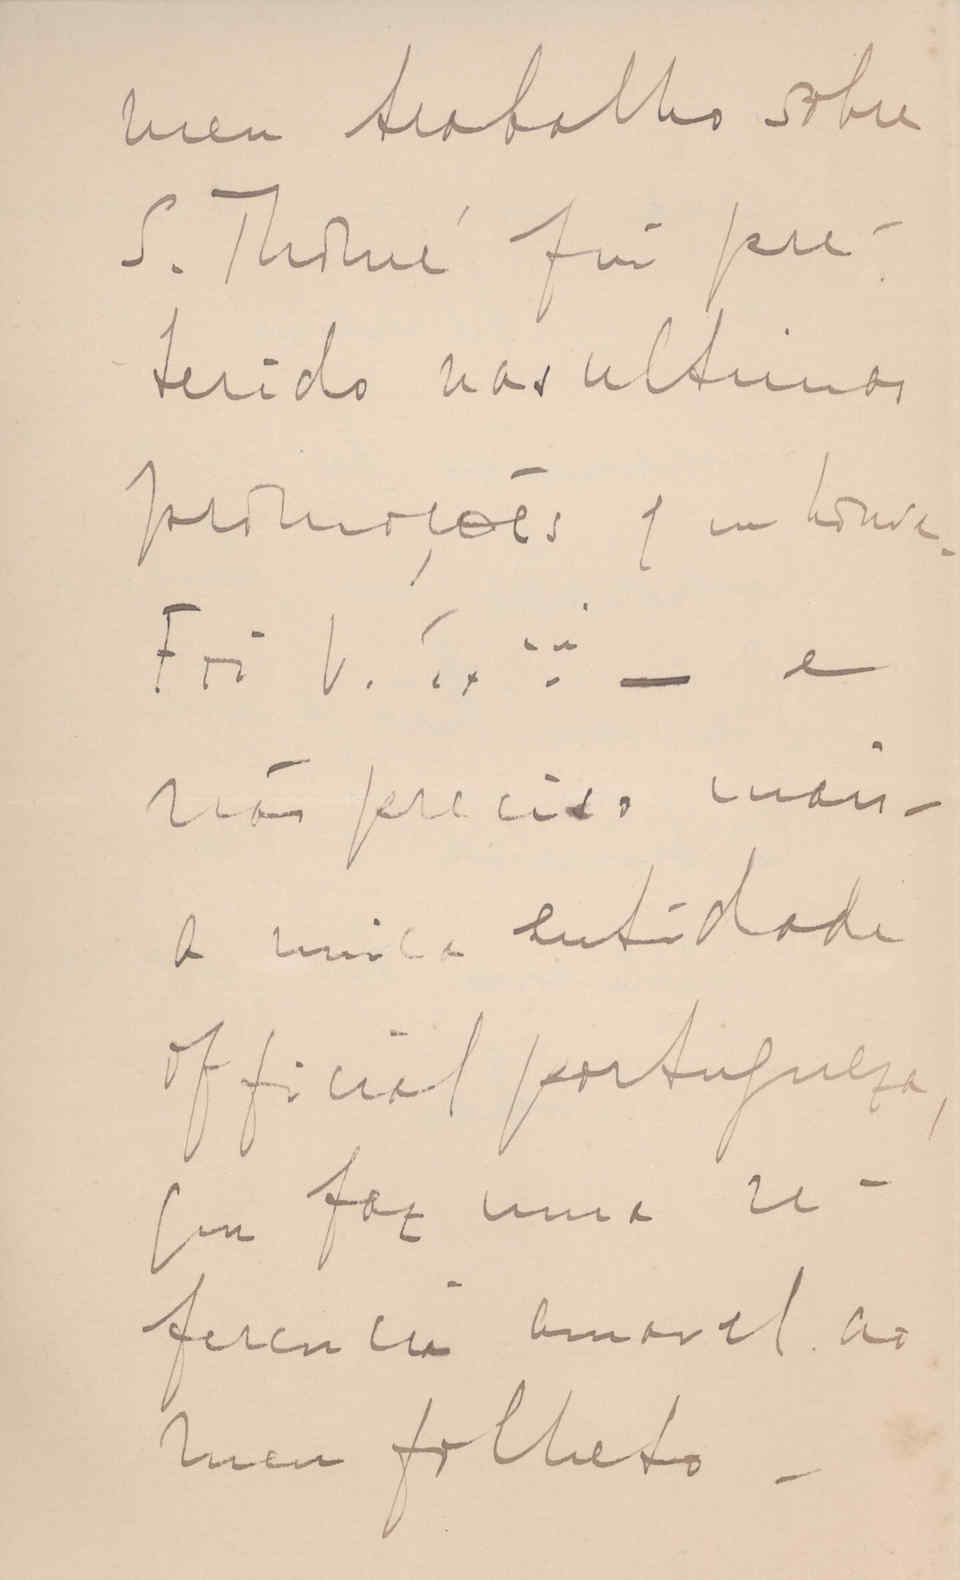 meu trabalho sobre
S. Thomé fui pre-
terido nas ultimas
promoções q em houve.
Foi V. Exª — e
não preciso mais –
a unica entidade
official portugueza,
que faz uma re-
ferencia amavel ao
meu folheto –